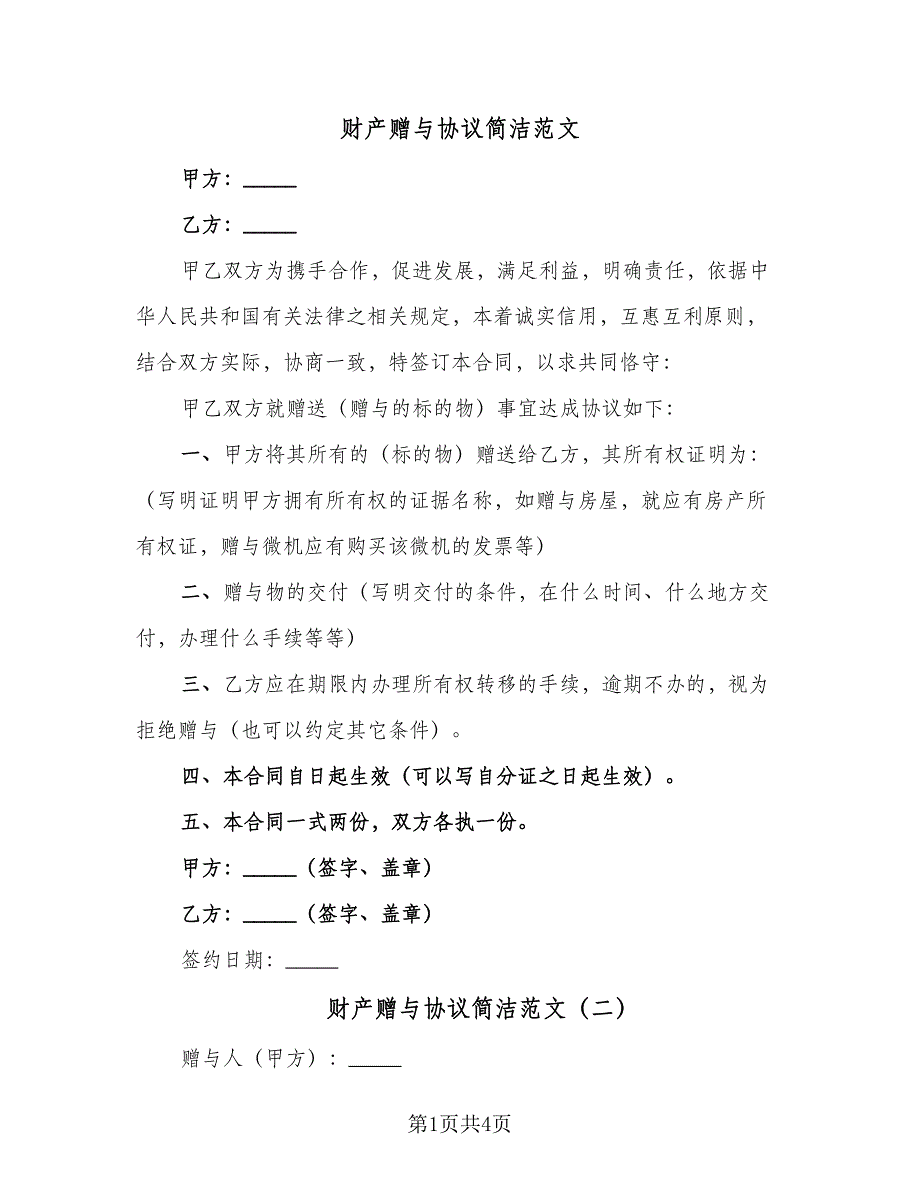 财产赠与协议简洁范文
甲方：_____
乙方：_____
甲乙双方为携手合作，促进发展，满足利益，明确责任，依据中
华人民共和国有关法律之相关规定，本着诚实信用，互惠互利原则，
结合双方实际，协商一致，特签订本合同，以求共同恪守：
甲乙双方就赠送（赠与的标的物）事宜达成协议如下：
一、甲方将其所有的（标的物）赠送给乙方，其所有权证明为：
（写明证明甲方拥有所有权的证据名称，如赠与房屋，就应有房产所
有权证，赠与微机应有购买该微机的发票等）
二、赠与物的交付（写明交付的条件，在什么时间、什么地方交
付，办理什么手续等等）
三、乙方应在期限内办理所有权转移的手续，逾期不办的，视为
拒绝赠与（也可以约定其它条件）。
四、本合同自日起生效（可以写自分证之日起生效）。
五、本合同一式两份，双方各执一份。
甲方：_____（签字、盖章）
乙方：_____（签字、盖章）
签约日期：_____
财产赠与协议简洁范文（二）
赠与人（甲方）：_____
第1页共4页